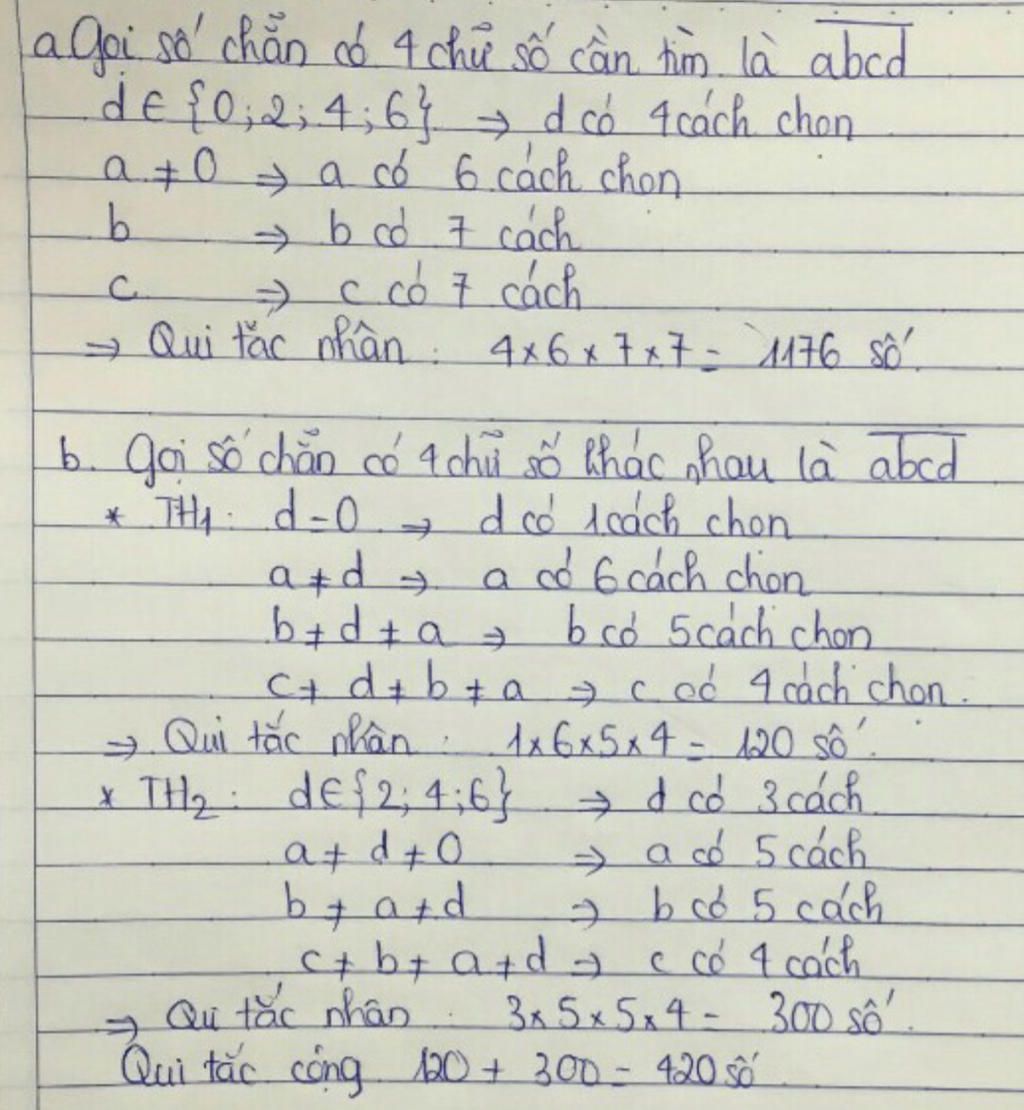 a. Gọi số chẵn có 4 chữ số cần tìm là abcd
d ∈ {0; 2; 4; 6} ⇒ d có 4 cách chọn
a ≠ 0 ⇒ a có 6 cách chọn
b ⇒ b có 7 cách
c ⇒ c có 7 cách
⇒ Qui tắc nhân: 4 × 6 × 7 × 7 = 1176 số.
b. Gọi số chẵn có 4 chữ số khác nhau là abcd
* TH1: d = 0 ⇒ d có 1 cách chọn
a ≠ d ⇒ a có 6 cách chọn
b ≠ d ≠ a ⇒ b có 5 cách chọn
c ≠ d ≠ b ≠ a ⇒ c có 4 cách chọn.
⇒ Qui tắc nhân: 1 × 6 × 5 × 4 = 120 số.
* TH2: d ∈ {2; 4; 6} ⇒ d có 3 cách
a ≠ d ≠ 0 ⇒ a có 5 cách
b ≠ a ≠ d ⇒ b có 5 cách
c ≠ b ≠ a ≠ d ⇒ c có 4 cách
⇒ Qui tắc nhân: 3 × 5 × 5 × 4 = 300 số.
Qui tắc cộng 120 + 300 = 420 số